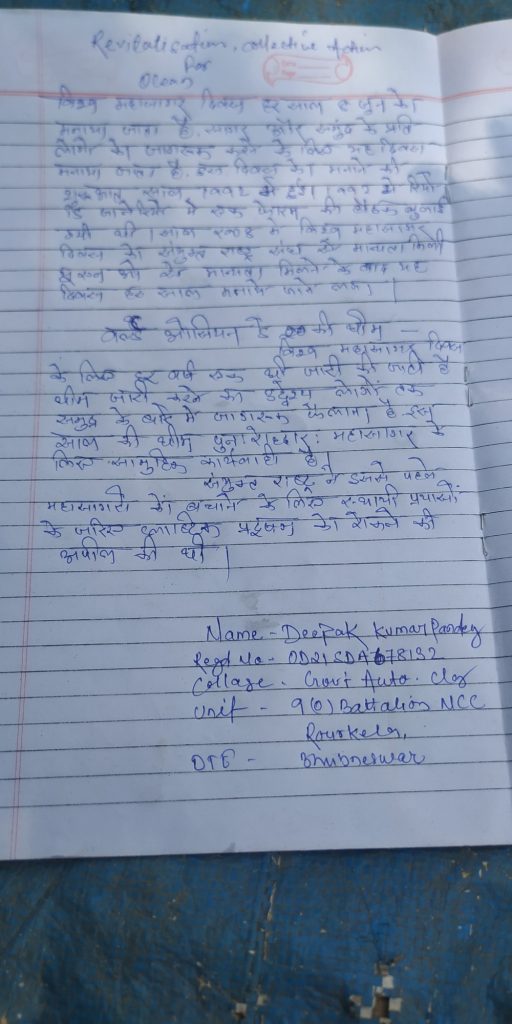 Revitalisation, collective Action
for
Ocean
विश्व महासागर दिवस हर साल 8 जून को
मनाया जाता है. सागर और समुद्र के प्रति
लोगों को जागरूक करने के लिए यह दिवस
मनाया जाता है. इस दिवस को मनाने की
शुरुआत साल 1992 में हुई। 1992 में रियो
डि जानेरियो में एक फोरम की बैठक बुलाई
गयी थी। साल में विश्व महासागर
दिवस को संयुक्त राष्ट्र संघ से मान्यता मिली
से मान्यता मिलने के बाद यह
दिवस हर साल मनाये जाने लगा।
वर्ल्ड ओशियन डे की थीम —
विश्व महासागर दिवस
के लिए हर वर्ष एक थीम जारी की जाती है
थीम जारी करने का उद्देश्य लोगों तक
समुद्र के बारे में जागरूक फैलाना है. इस
साल की थीम पुनरोद्धार: महासागर के
लिए सामुहिक कार्यवाही है।
संयुक्त राष्ट्र ने इससे पहले
महासागरों को बचाने के लिए स्थायी प्रयासों
के जरिए प्लास्टिक प्रदूषण को रोकने की
अपील की थी।
Name - Deepak Kumar Pandey
Regd No - OD21SDA678132
Collage - Govt Auto. Clg
Unit - 9(O) Battalion NCC
Rourkela,
DTE - Bhubneswar